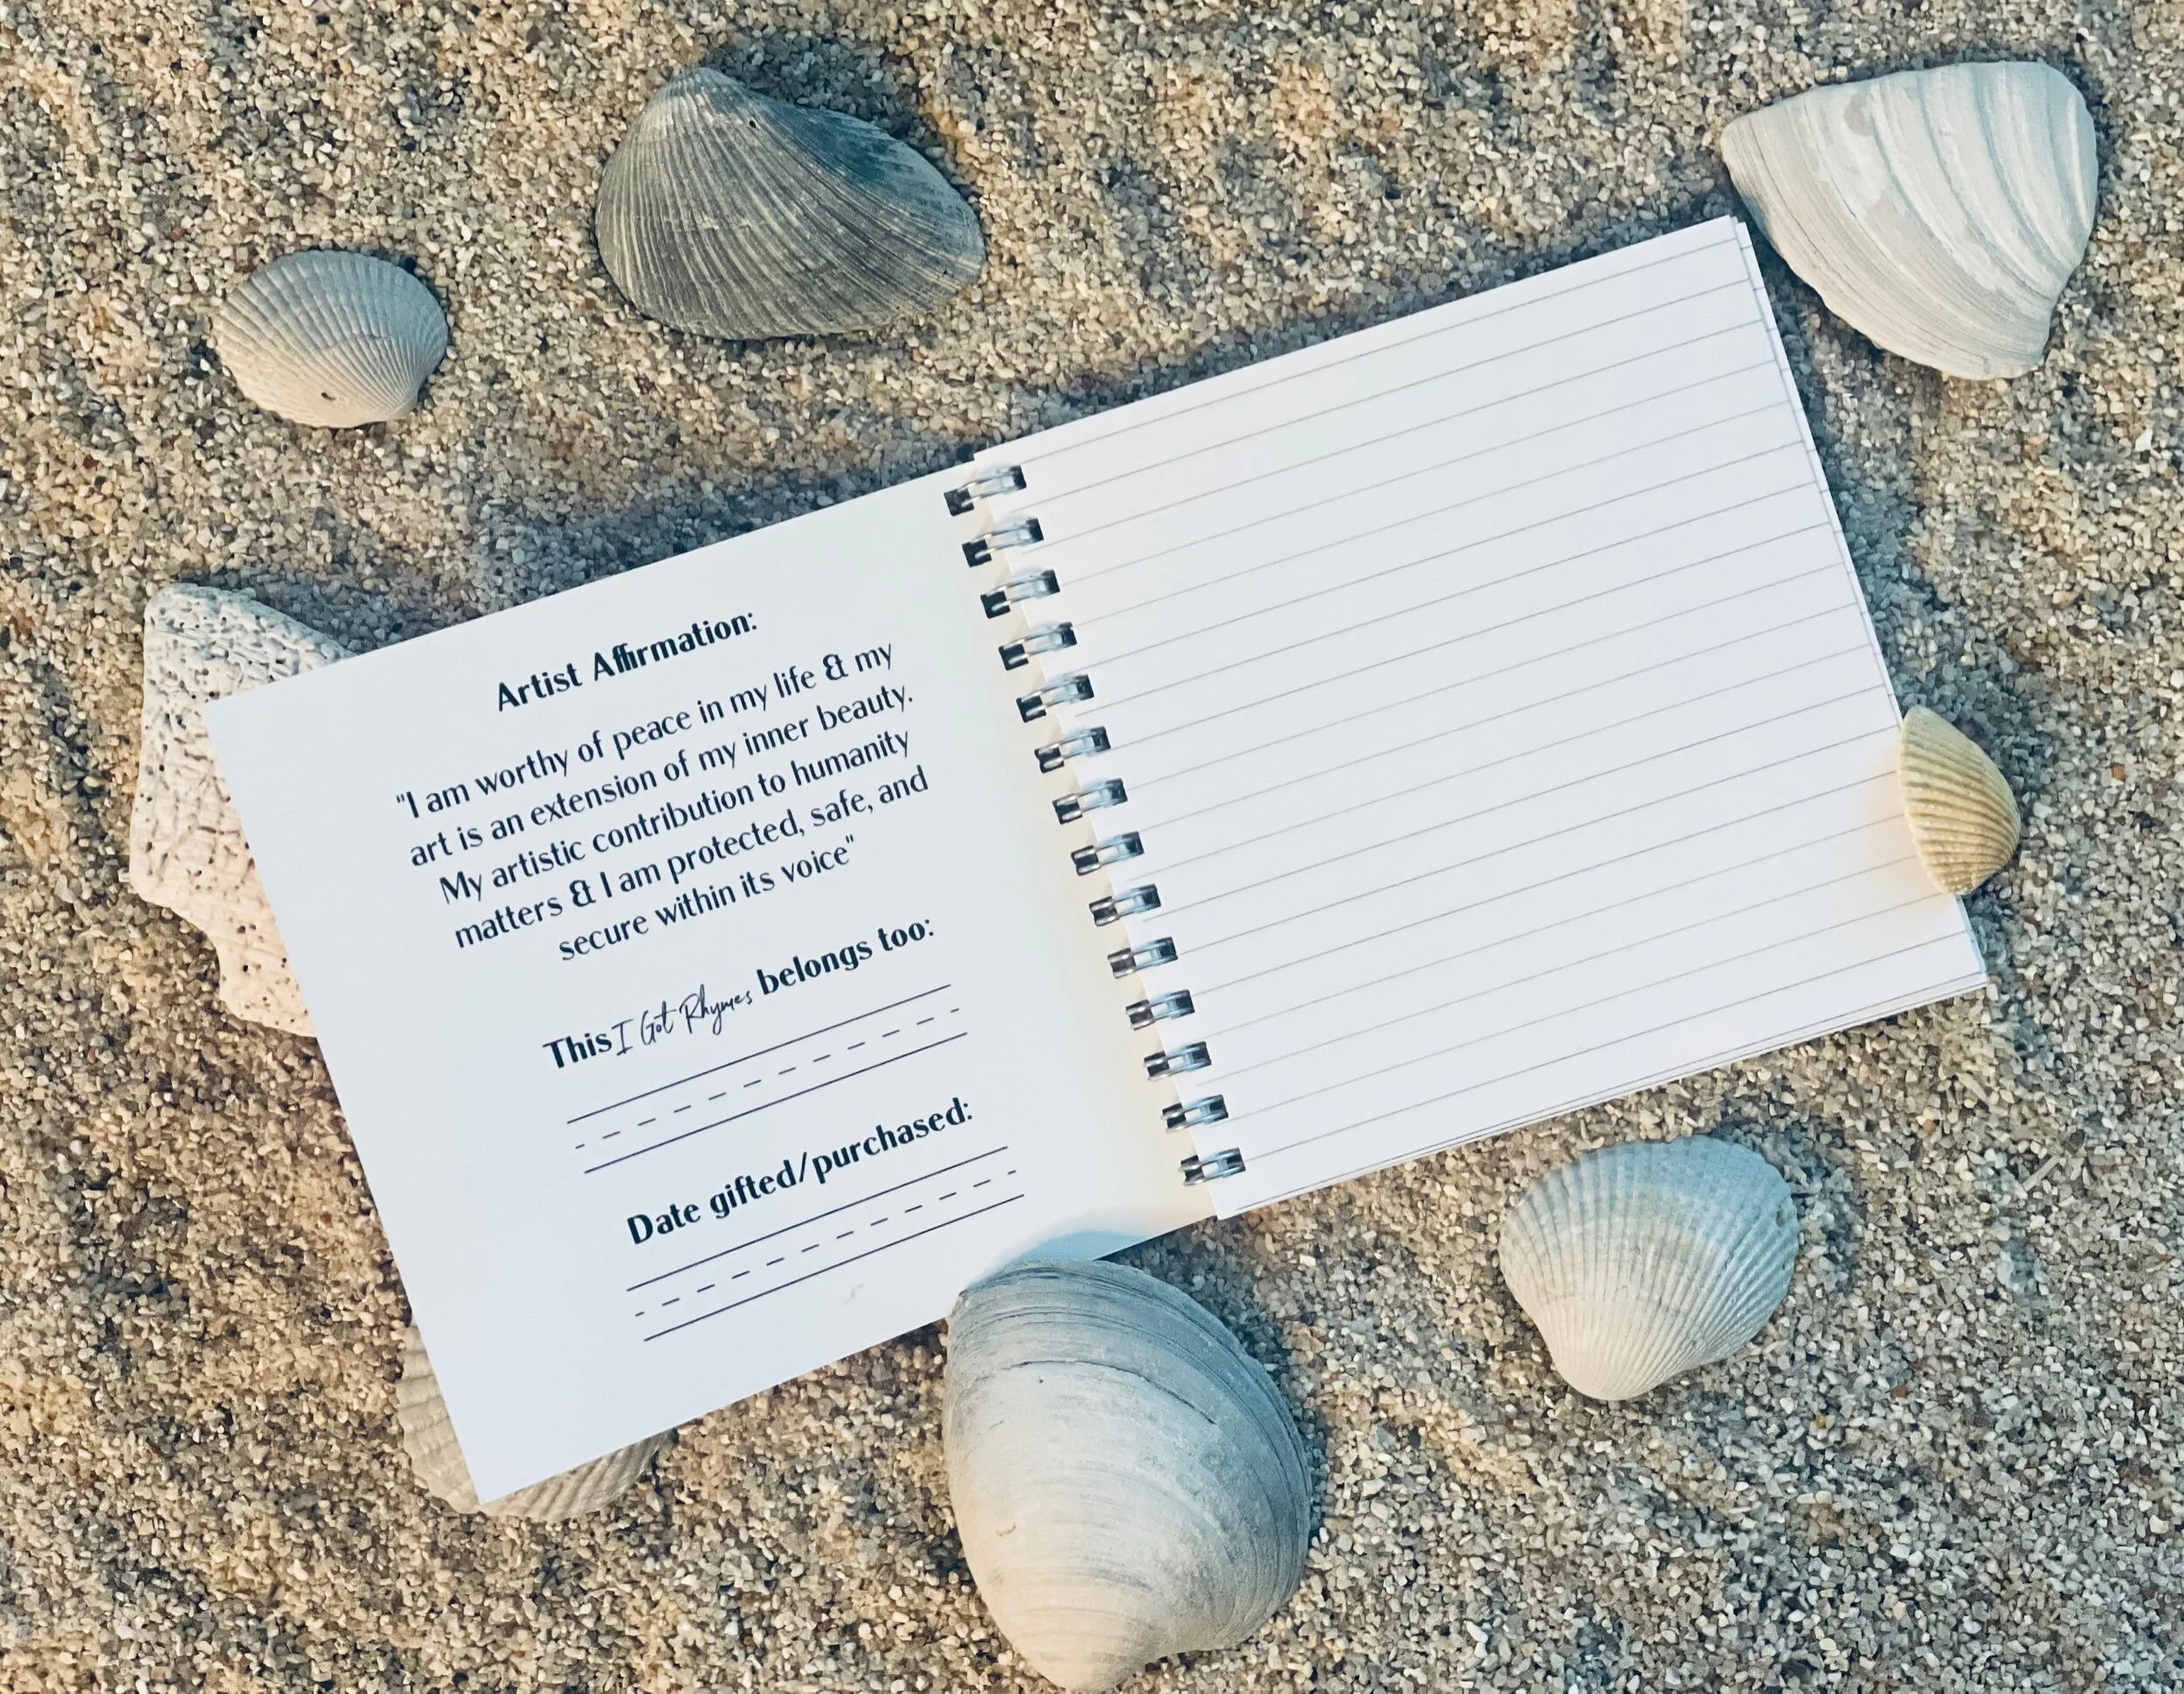 Artist Affirmation:
"I am worthy of peace in my life & my
art is an extension of my inner beauty.
My artistic contribution to humanity
matters & I am protected, safe, and
secure within its voice"
This I Got Rhymes belongs too:
Date gifted/purchased: